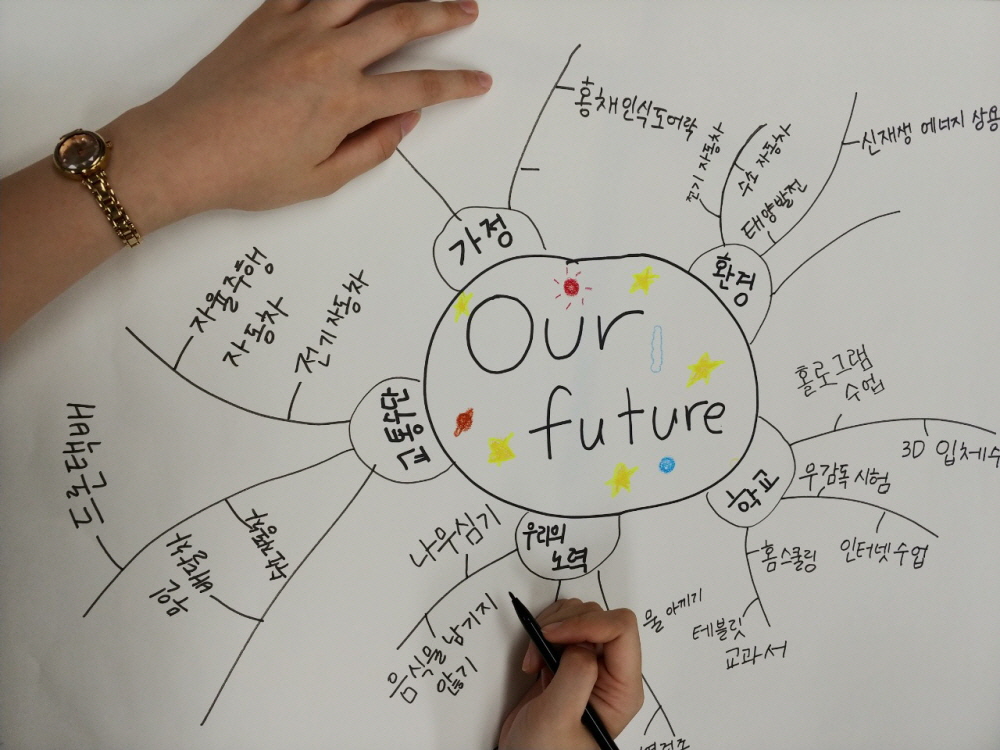 Our
future
가정
홍채인식도어락
환경
전기 자동차
수소 자동차
태양발전
신재생 에너지 상용
학교
홀로그램
수업
3D 입체수
무감독 시험
인터넷 수업
홈스쿨링
테블릿
교과서
우리의
노력
나무심기
음식을 남기지
않기
물 아끼기
교통수단
전기 자동차
자율주행
자동차
드론택배
무인
배달차
수소자동차